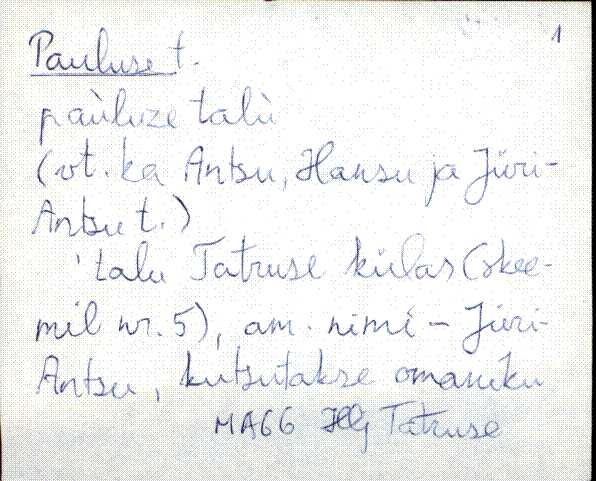 1
Pauluse t.
paùluze talù
(vt. ka Antsu, Hansu ja Jüri-
Antsu t.)
'talu Tatruse külas (skee-
mil nr. 5), am. nimi – Jüri-
Antsu, kutsutakse omaniku
MA66 Hlj Tatruse